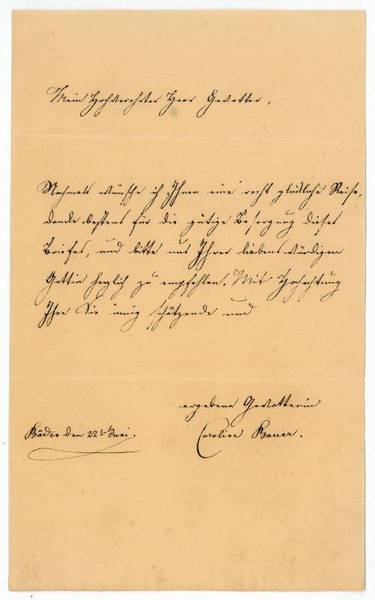 Mein Hochverehrter Herr Gevatter,
Nochmals wünsche ich Ihnen eine recht glückliche Reise,
danke bestens für die gütige Besorgung dieses
Briefes, und bitte mich Ihrer liebenswürdigen
Gattin herzlich zu empfehlen. Mit Hochachtung
Ihre Sie innig schätzende und
ergebene Gevatterin
Caroline Bauer.
den 22t